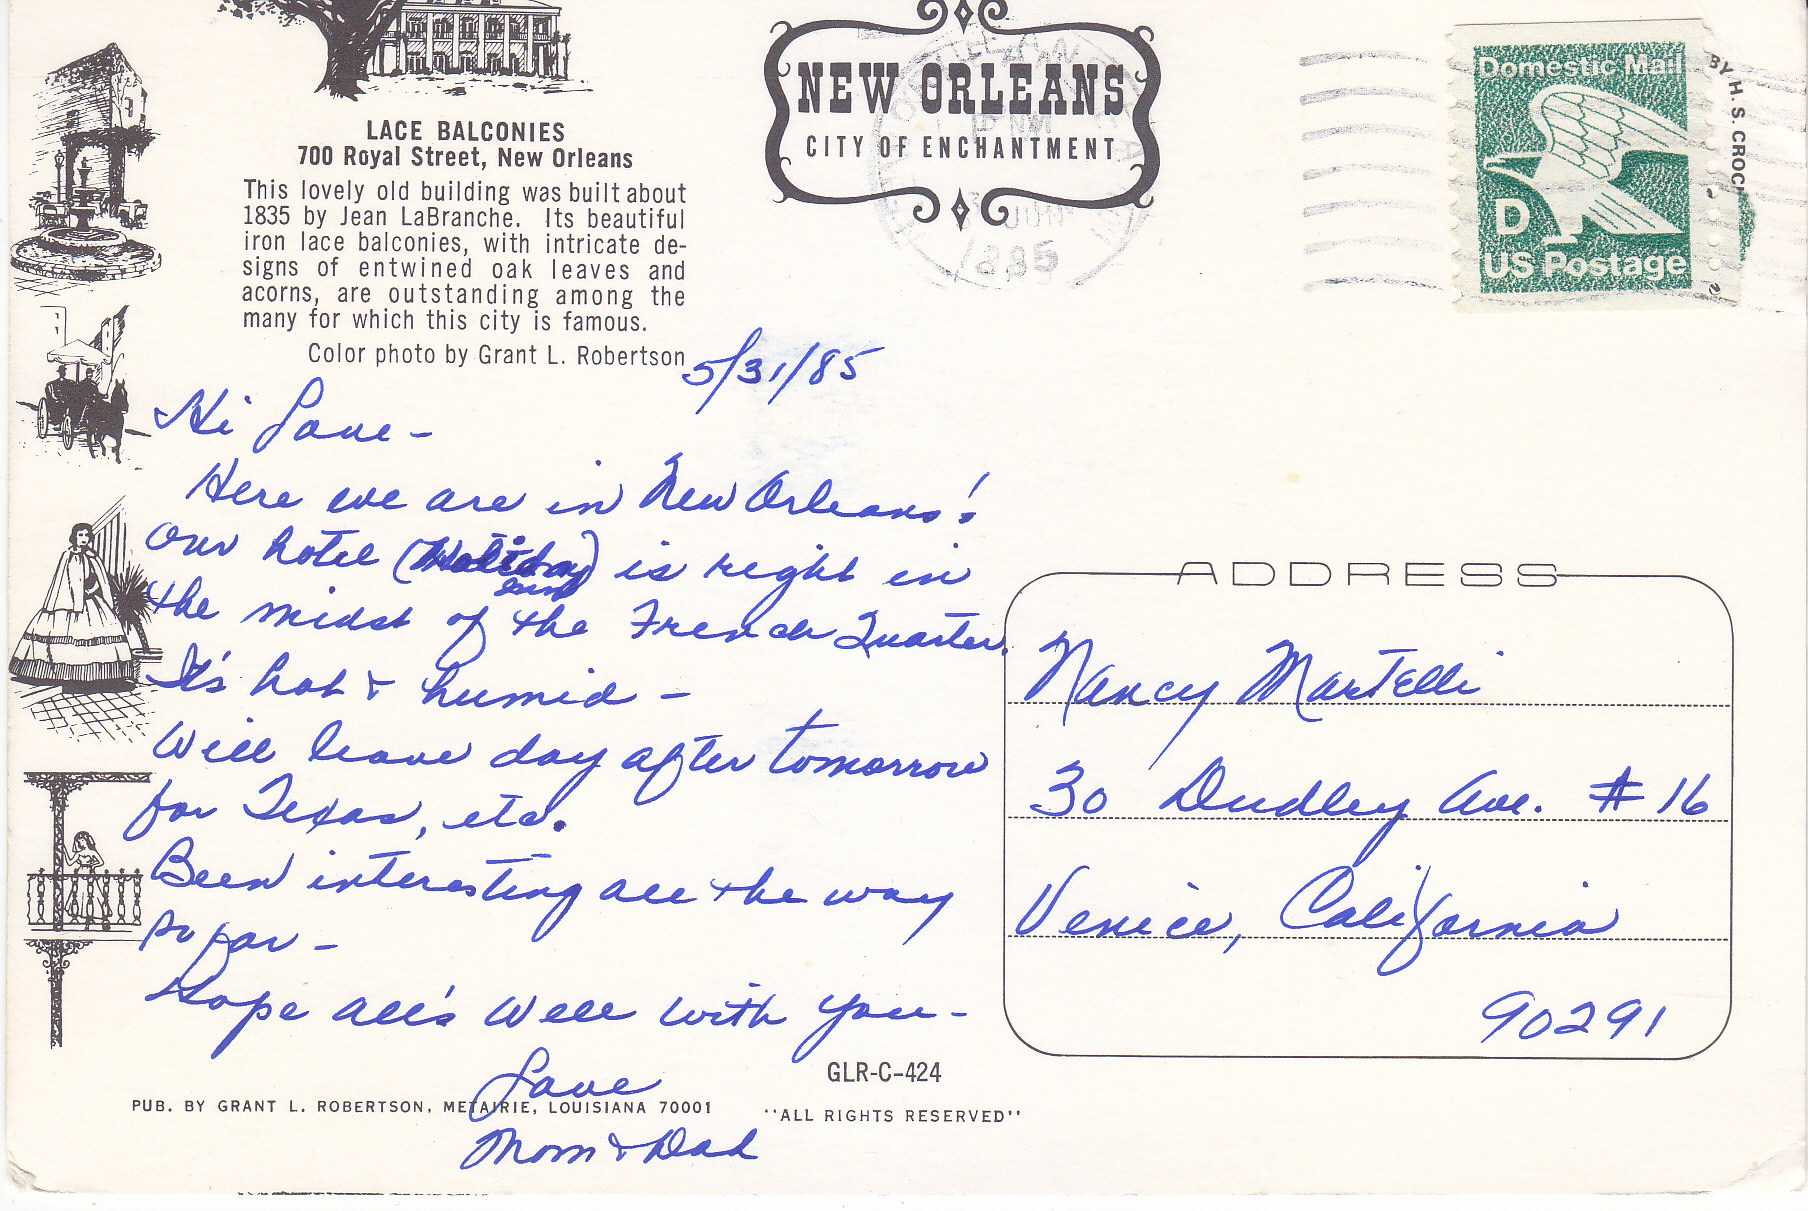 LACE BALCONIES
700 Royal Street, New Orleans
This lovely old building was built about
1835 by Jean LaBranche. Its beautiful
iron lace balconies, with intricate de-
signs of entwined oak leaves and
acorns, are outstanding among the
many for which this city is famous.
Color photo by Grant L. Robertson
NEW ORLEANS
CITY OF ENCHANTMENT
JUN
1985
Domestic Mail
D
US Postage
BY H. S. CROC
5/31/85
Hi Love -
Here we are in New Orleans!
Our hotel (Holiday Inn) is right in
the midst of the French Quarter.
It's hot & humid -
Will leave day after tomorrow
for Texas, etc.
Been interesting all the way
so far -
Hope all's well with you -
Love
Mom & Dad
ADDRESS
Nancy Martelli
30 Dudley Ave. # 16
Venice, California
90291
GLR-C-424
PUB. BY GRANT L. ROBERTSON, METAIRIE, LOUISIANA 70001
"ALL RIGHTS RESERVED"